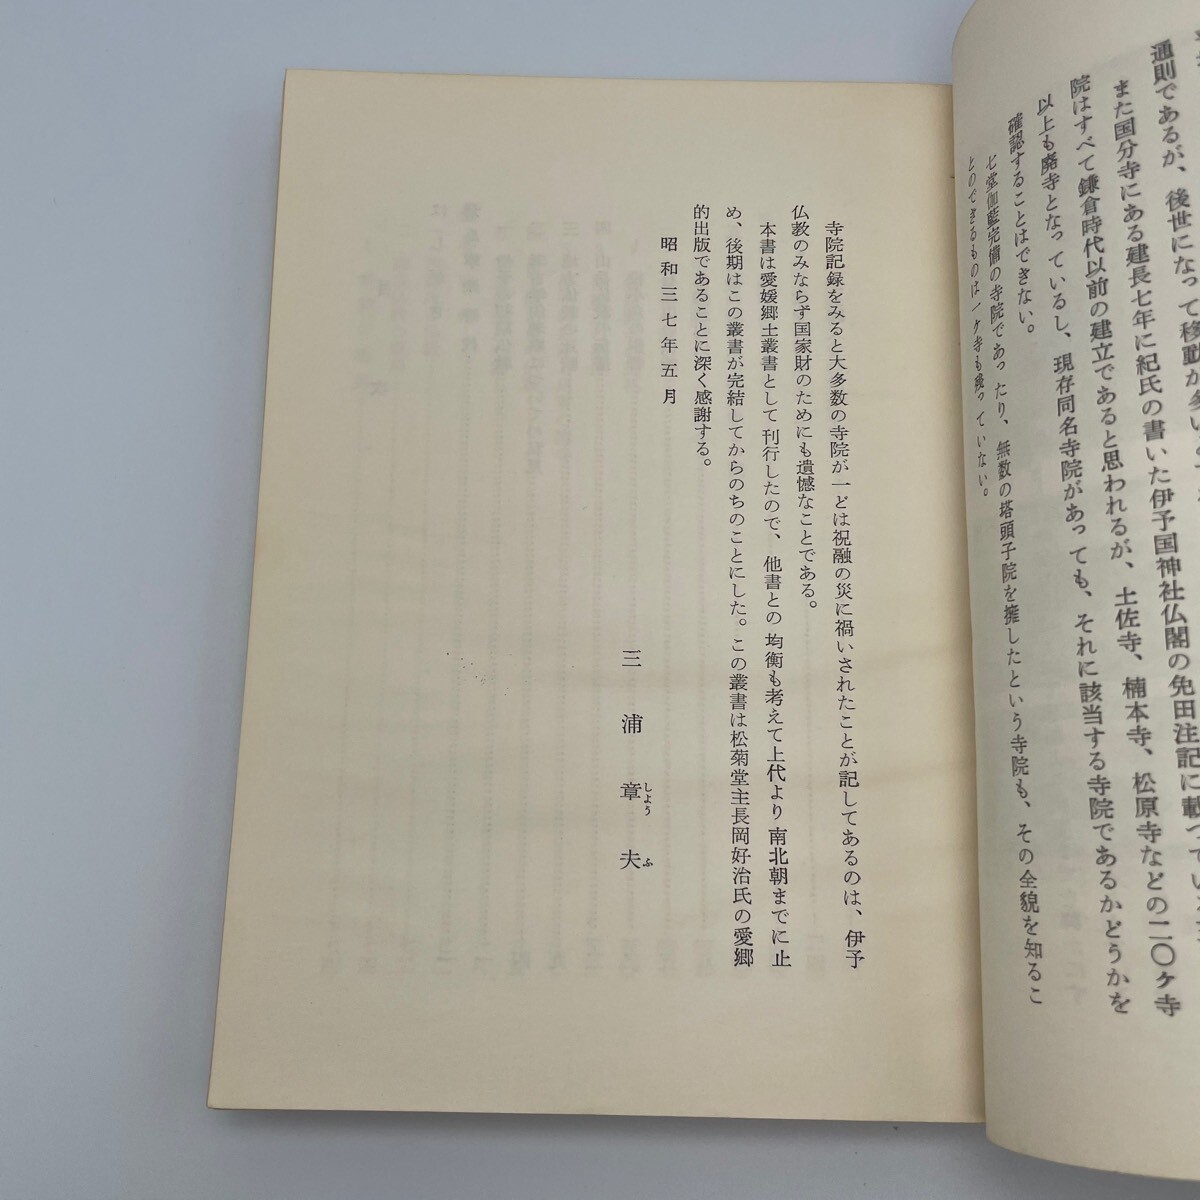 通則であるが、後世になって移動が多い
また国分寺にある建長七年に紀氏の書いた伊予国神社仏閣の免田注記に載っている
院はすべて鎌倉時代以前の建立であると思われるが、土佐寺、楠本寺、松原寺などの二〇ヶ寺
以上も廃寺となっているし、現存同名寺院があっても、それに該当する寺院であるかどうかを
確認することはできない。
七堂伽藍完備の寺院であったり、無数の塔頭子院を擁したという寺院も、その全貌を知るこ
とのできるものは一ヶ寺も残っていない。
寺院記録をみると大多数の寺院が一どは祝融の災に禍いされたことが記してあるのは、伊予
仏教のみならず国家財のためにも遺憾なことである。
本書は愛媛郷土叢書として刊行したので、他書との均衡も考えて上代より南北朝までに止
め、後期はこの叢書が完結してからのちのことにした。この叢書は松菊堂主長岡好治氏の愛郷
的出版であることに深く感謝する。
昭和三七年五月
三浦章夫
しようふ